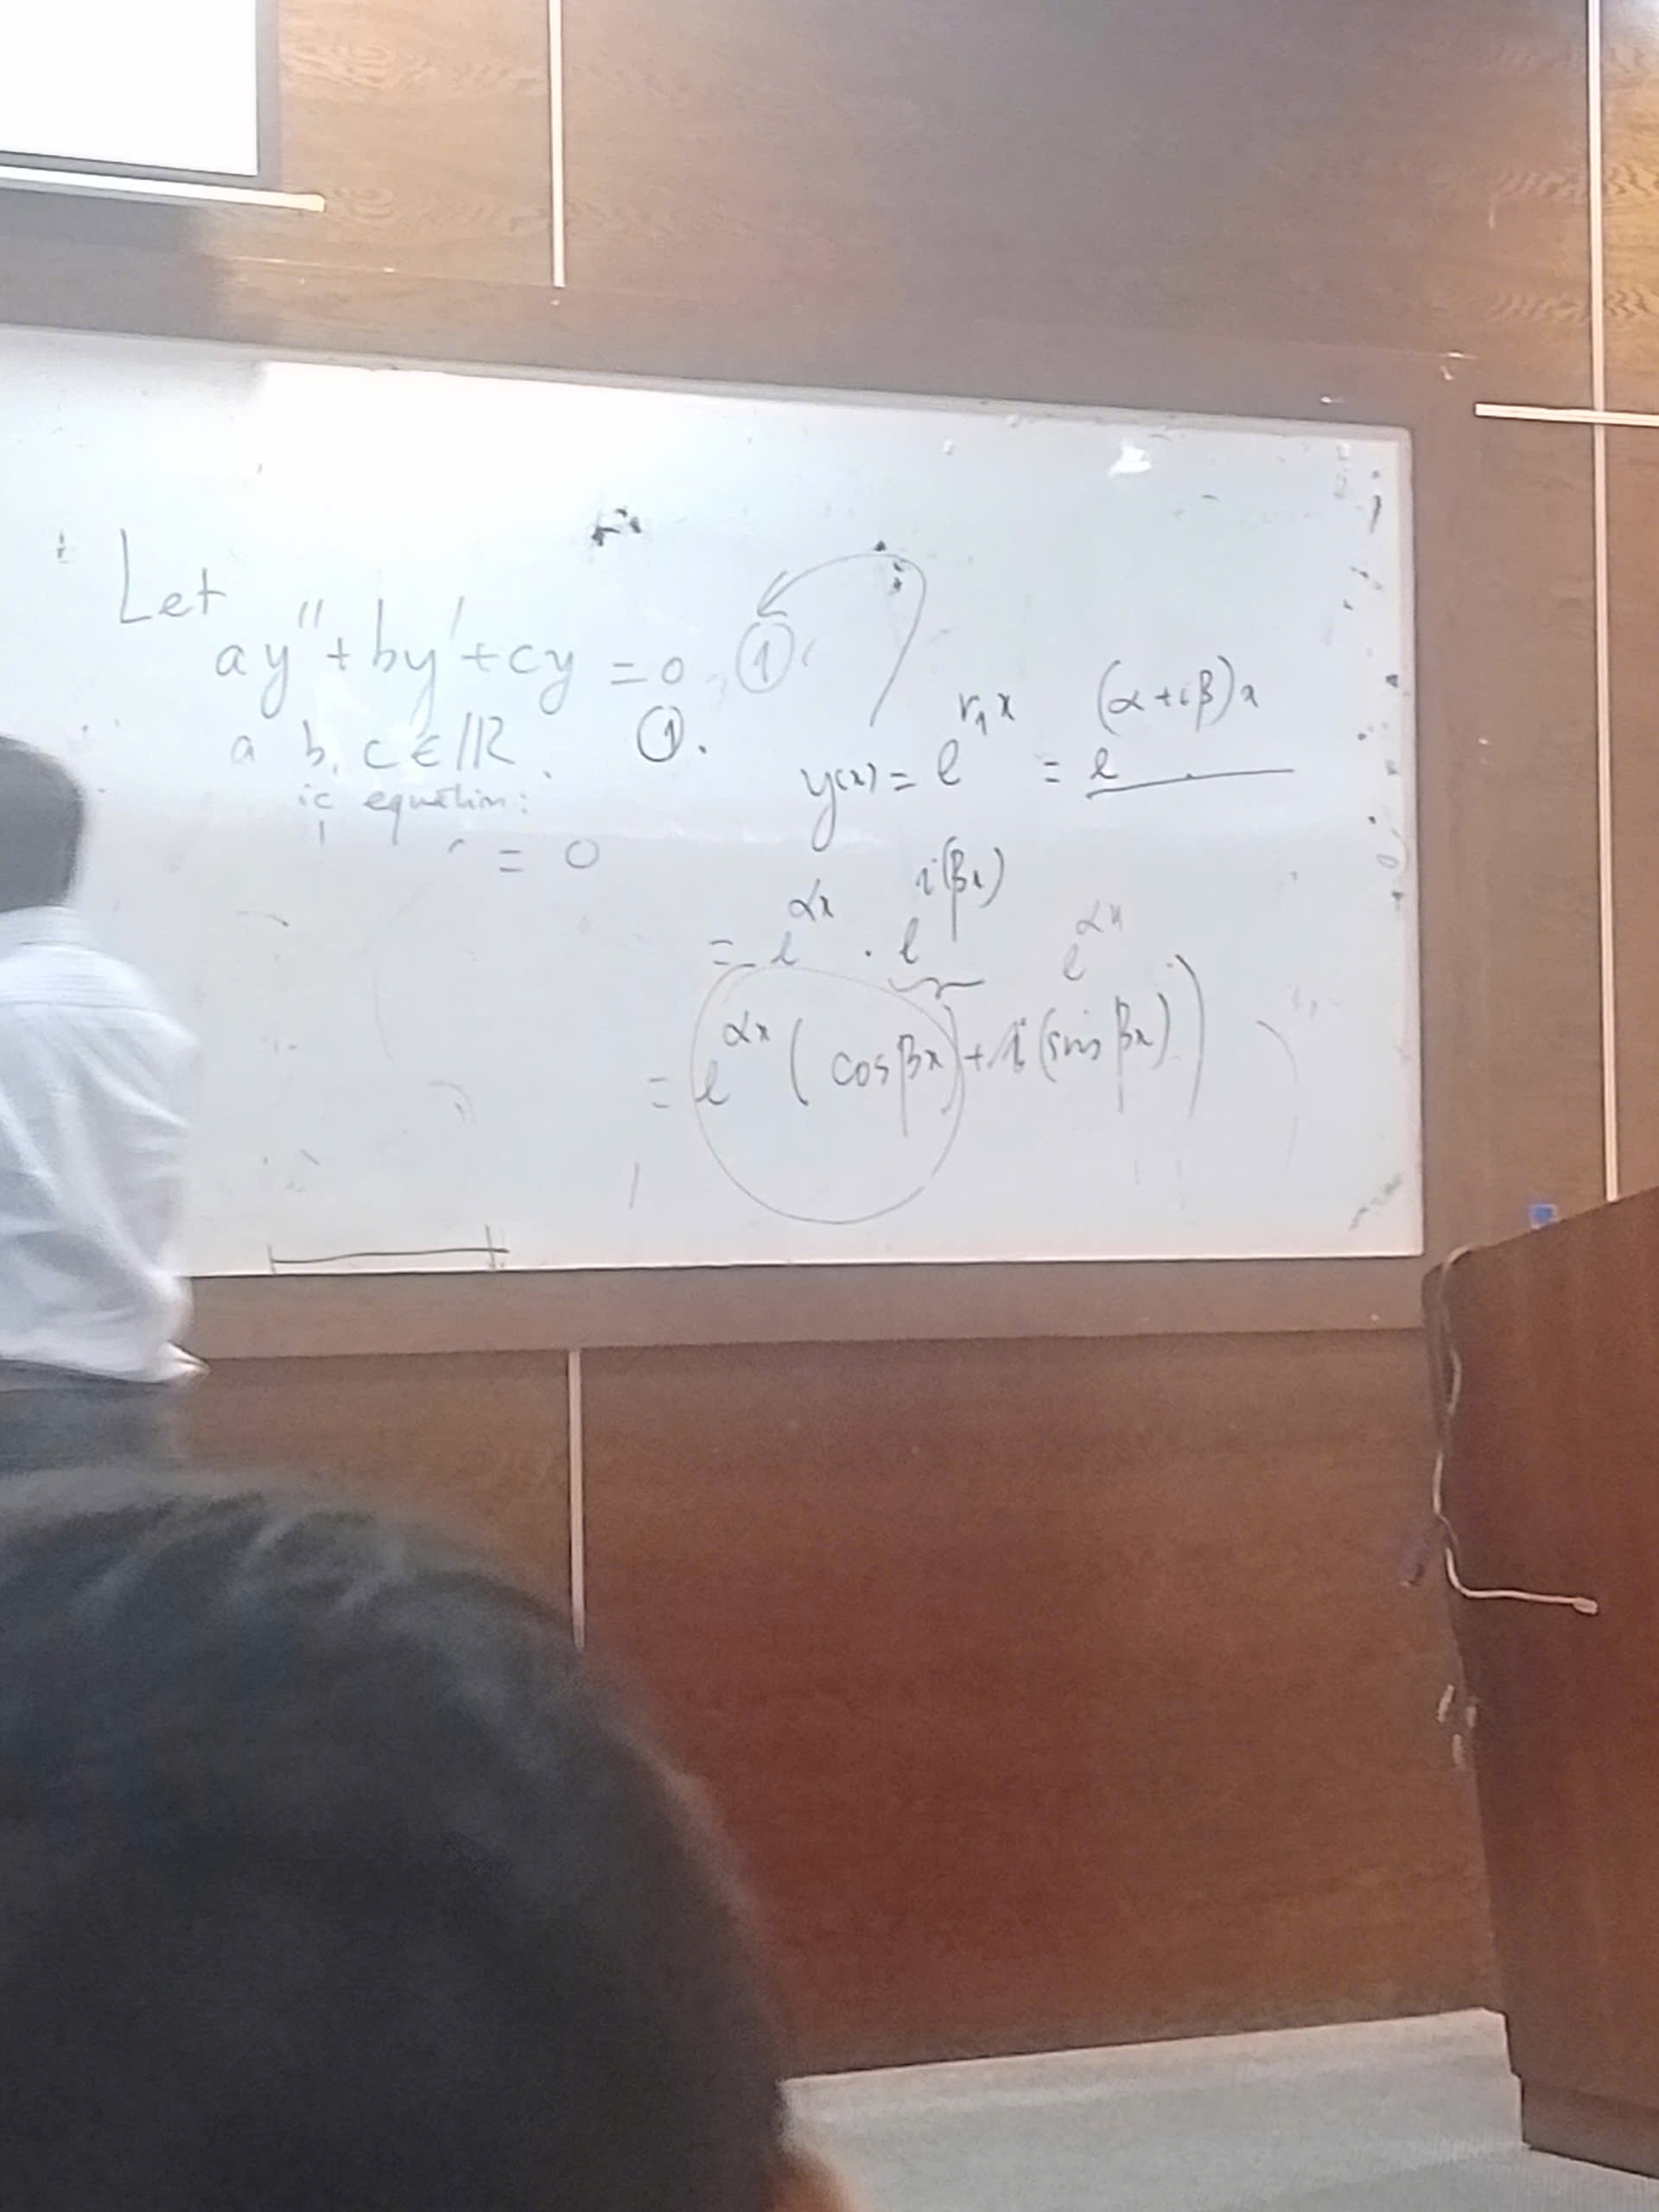 Let
ay'' + by' + cy = 0 ①
a b, c ∈ ℝ. ①.
ic equation:
= 0
y(x) = e^{r₁x} = e^{(α+iβ)x}
= e^{αx} · e^{i(βx)} e^{αx}
= e^{αx} (cosβx) + i(sinβx))